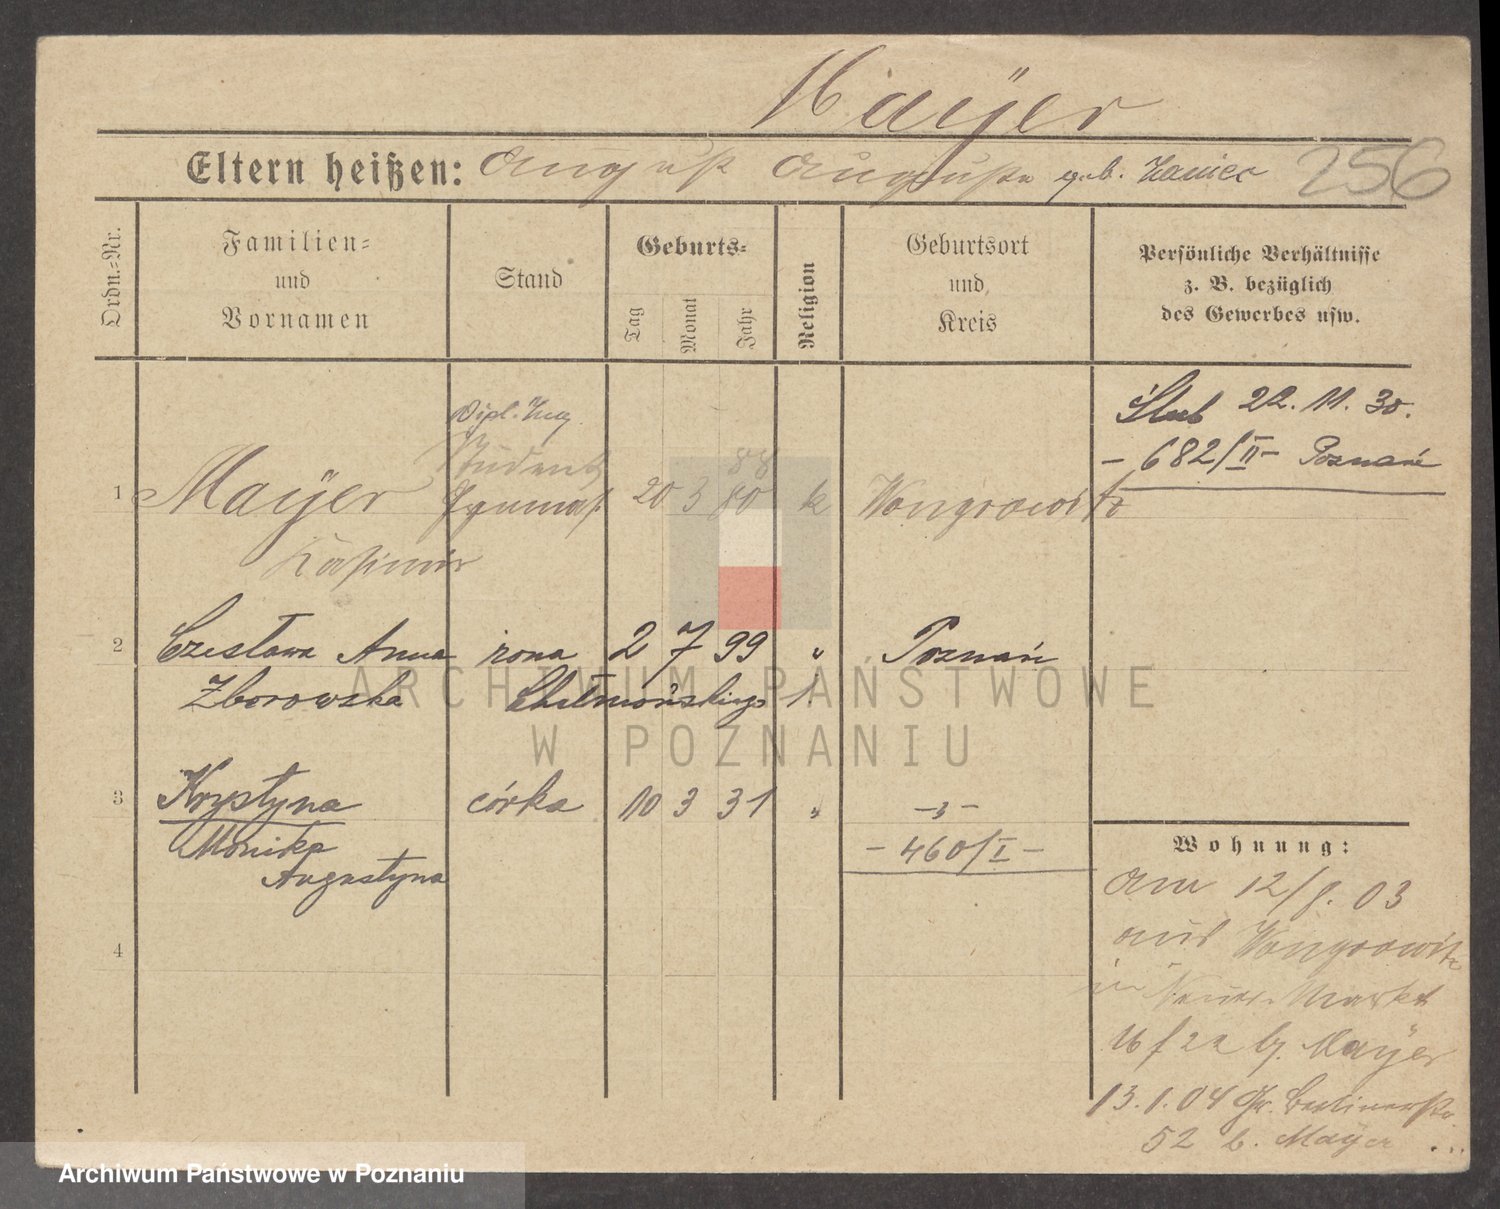 Mayer
Eltern heißen: August Auguste geb. Zaniec 256
Ordn.=Nr.
Familien= und Vornamen
Stand
Geburts=
Tag
Monat
Jahr
Religion
Geburtsort und Kreis
Persönliche Verhältnisse z. B. bezüglich des Gewerbes usw.
Ślub 22.11.30.
- 682/II - Poznań
Dipl. Ing.
Student
88
1 Mayer 20 3 80 k Wongrowitz
Kasimir
2 Czesława Anna żona 2 7 99 „ Poznań
Zborowska Chełmońskiego
3 Krystyna córka 10 3 31 „ -„-
Monika - 460/I -
Augustyna
4
Wohnung:
Am 12/8. 03
aus Wongrowitz
in Neuer Markt
16 b. Mayer
13.1.04 Gr. Berlinerstr
52 b. Mayer
ARCHIWUM PAŃSTWOWE
W POZNANIU
Archiwum Państwowe w Poznaniu